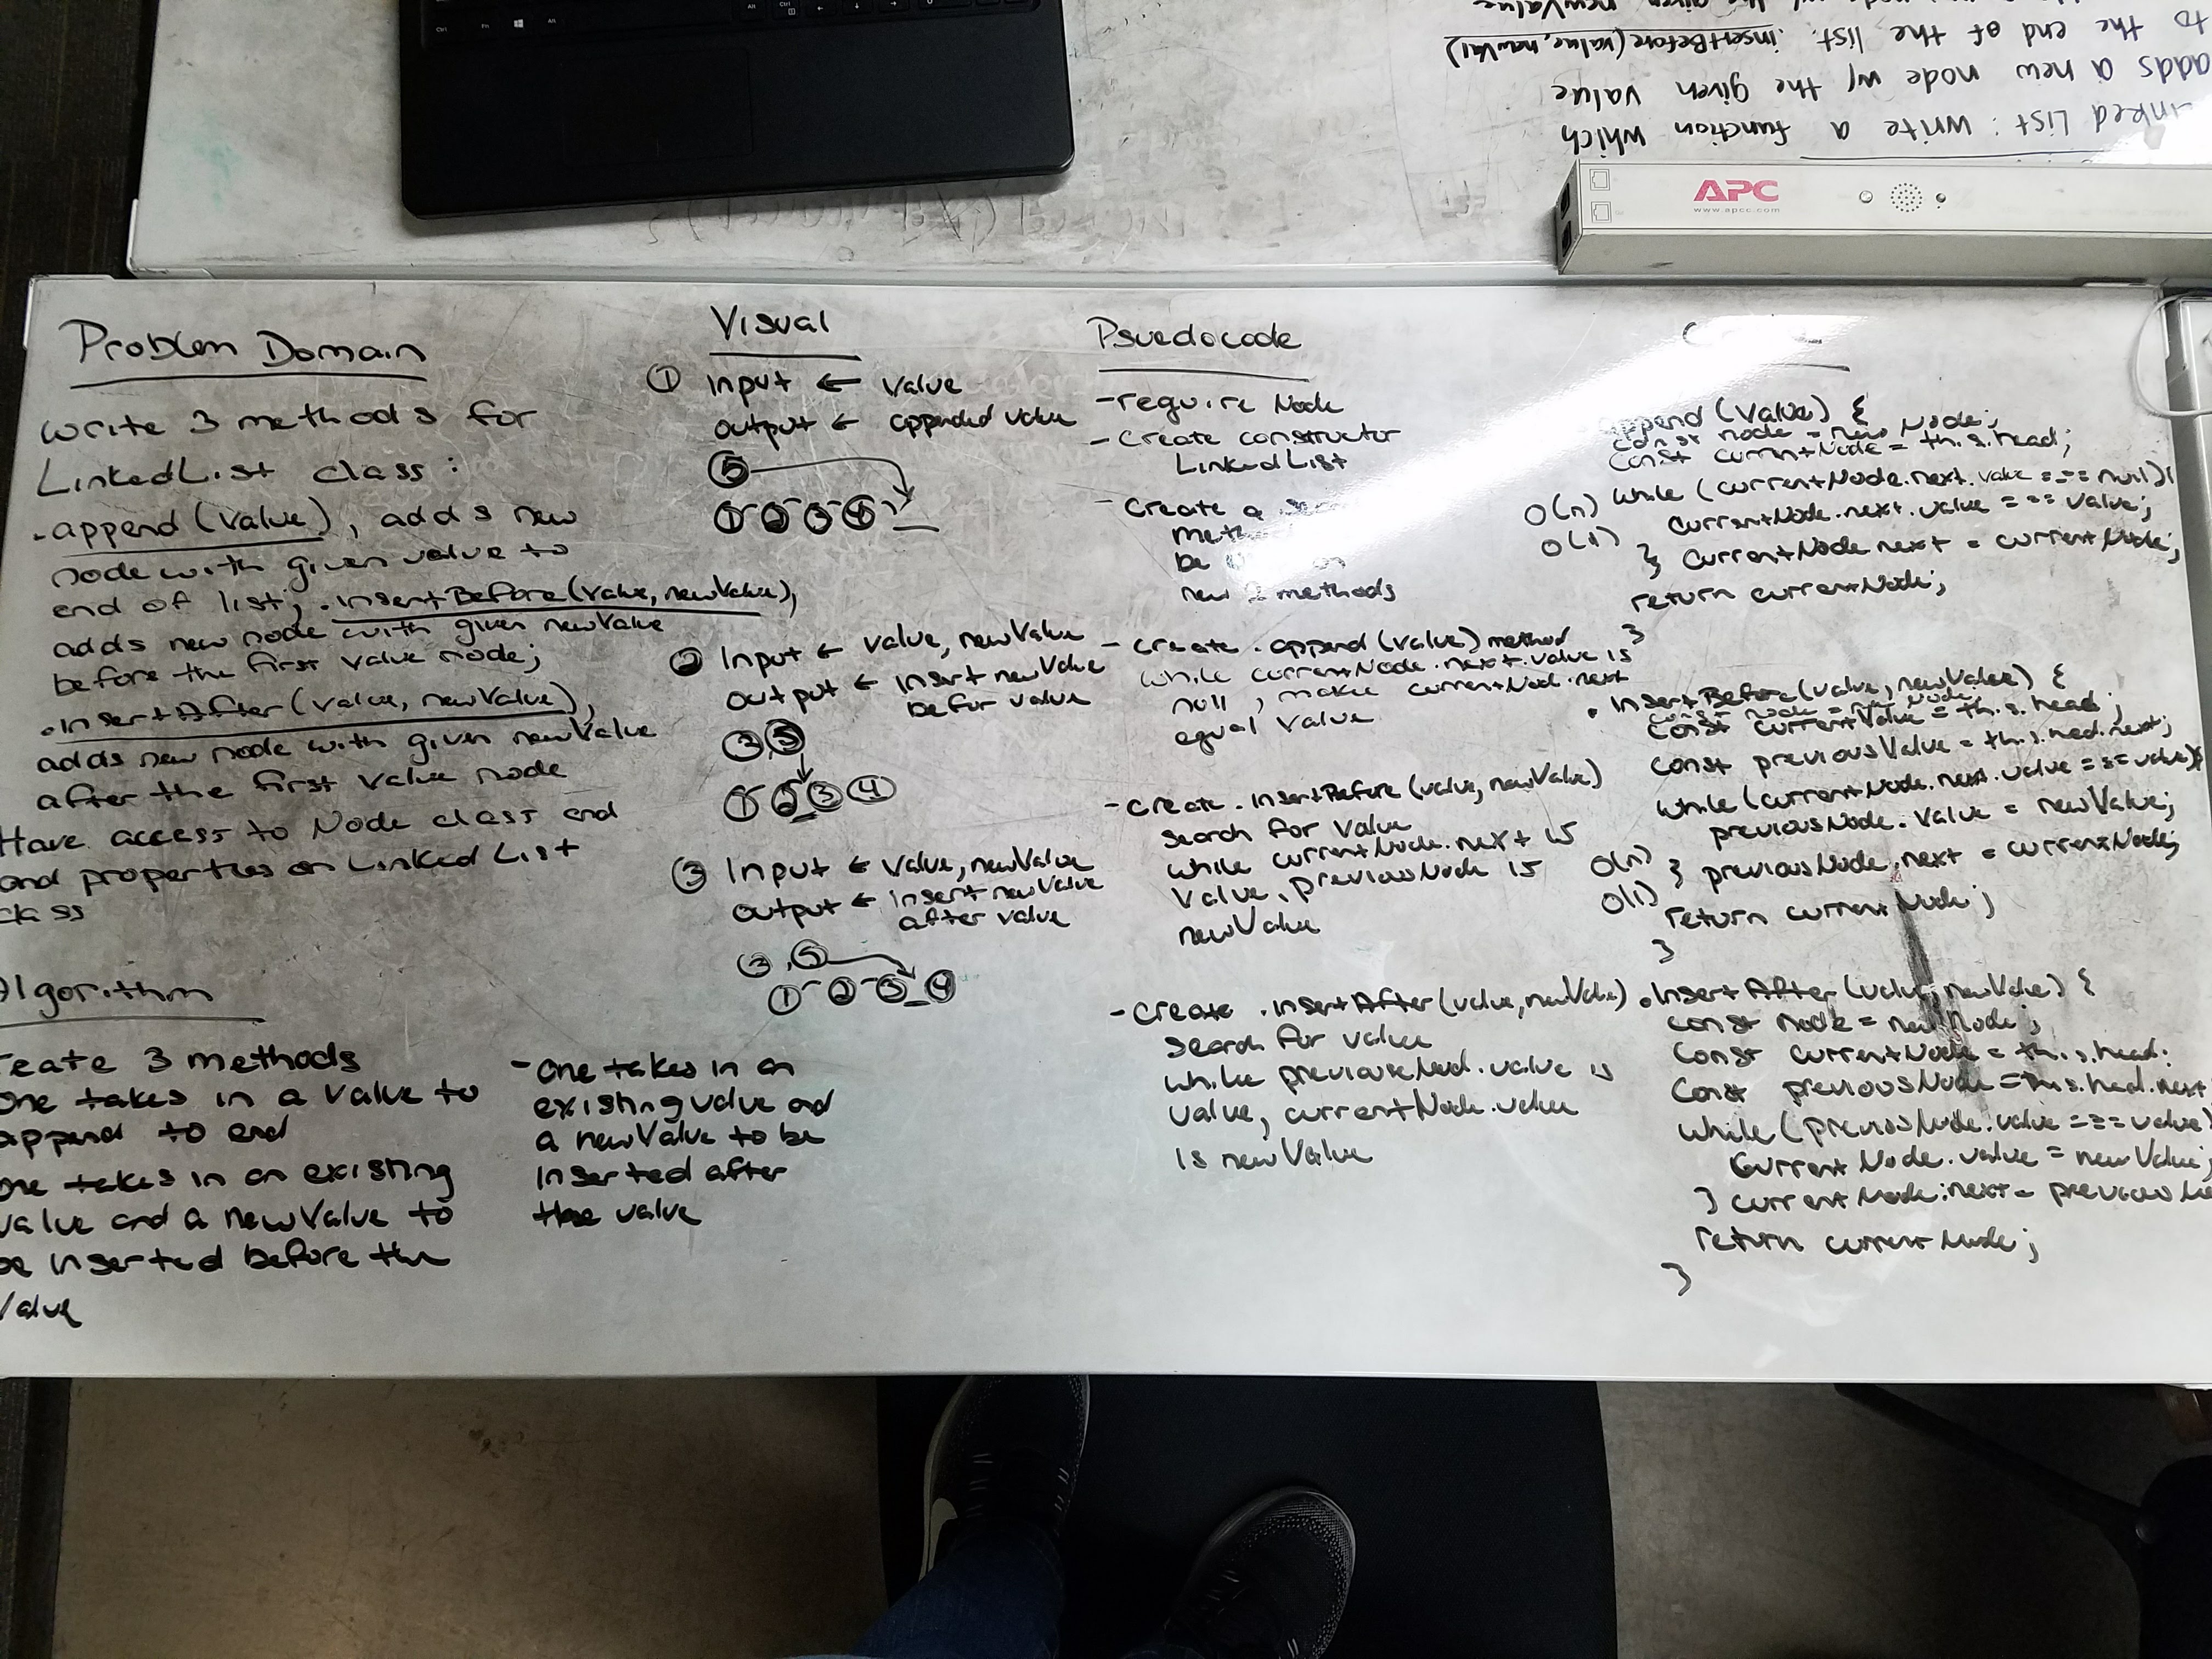 to the end of the list. .insertBefore(value, newVal)
adds a new node w/ the given value
Linked List: write a function which
APC
www.apcc.com
Problem Domain
Write 3 methods for
LinkedList class:
.append(value), adds new
node with given value to
end of list; .insertBefore(value, newValue),
adds new node with given newValue
before the first value node;
.insertAfter(value, newValue),
adds new node with given newValue
after the first value node
Have access to Node class and
and properties on Linked List
class
Algorithm
reate 3 methods
one takes in a value to
append to end
one takes in an existing
value and a newValue to
be inserted before the
value
- one takes in an
existing value and
a newValue to be
inserted after
the value
Visual
① Input ← value
output ← appended value
5
1 2 3 4
② Input ← value, newValue
output ← insert newValue
befor value
3, 5
1 2 3 4
③ Input ← value, newValue
output ← insert newValue
after value
3, 5
1 2 3 4
Psuedocode
- require Node
- Create constructor
LinkedList
- Create a
be
new 2 methods
- Create .append(value) method
while currentNode.next.value is
null, make currentNod.next
equal value
- Create .insertBefore(value, newValue)
search for value
while currentNode.next is
value, previousNode is
newValue
- Create .insertAfter(value, newValue)
search for value
while previousNod.value is
value, currentNode.value
is newValue
append(value) {
const node = new Node;
const currentNode = this.head;
O(n) while (currentNode.next.value === null){
currentNode.next.value === value;
O(1) } currentNode.next = currentNode;
return currentNode;
}
.insertBefore(value, newValue) {
const node = new Node;
const currentValue = this.head;
const previousValue = this.head.next;
while (currentNode.next.value === value){
previousNode.value = newValue;
O(n) } previousNode.next = currentNode;
O(1) return currentNode;
}
.insertAfter(value, newValue) {
const node = new Node;
const currentNode = this.head;
const previousNode = this.head.next
while (previousNode.value === value)
currentNode.value = newValue;
} currentNode.next = previousNo
return currentNode;
}